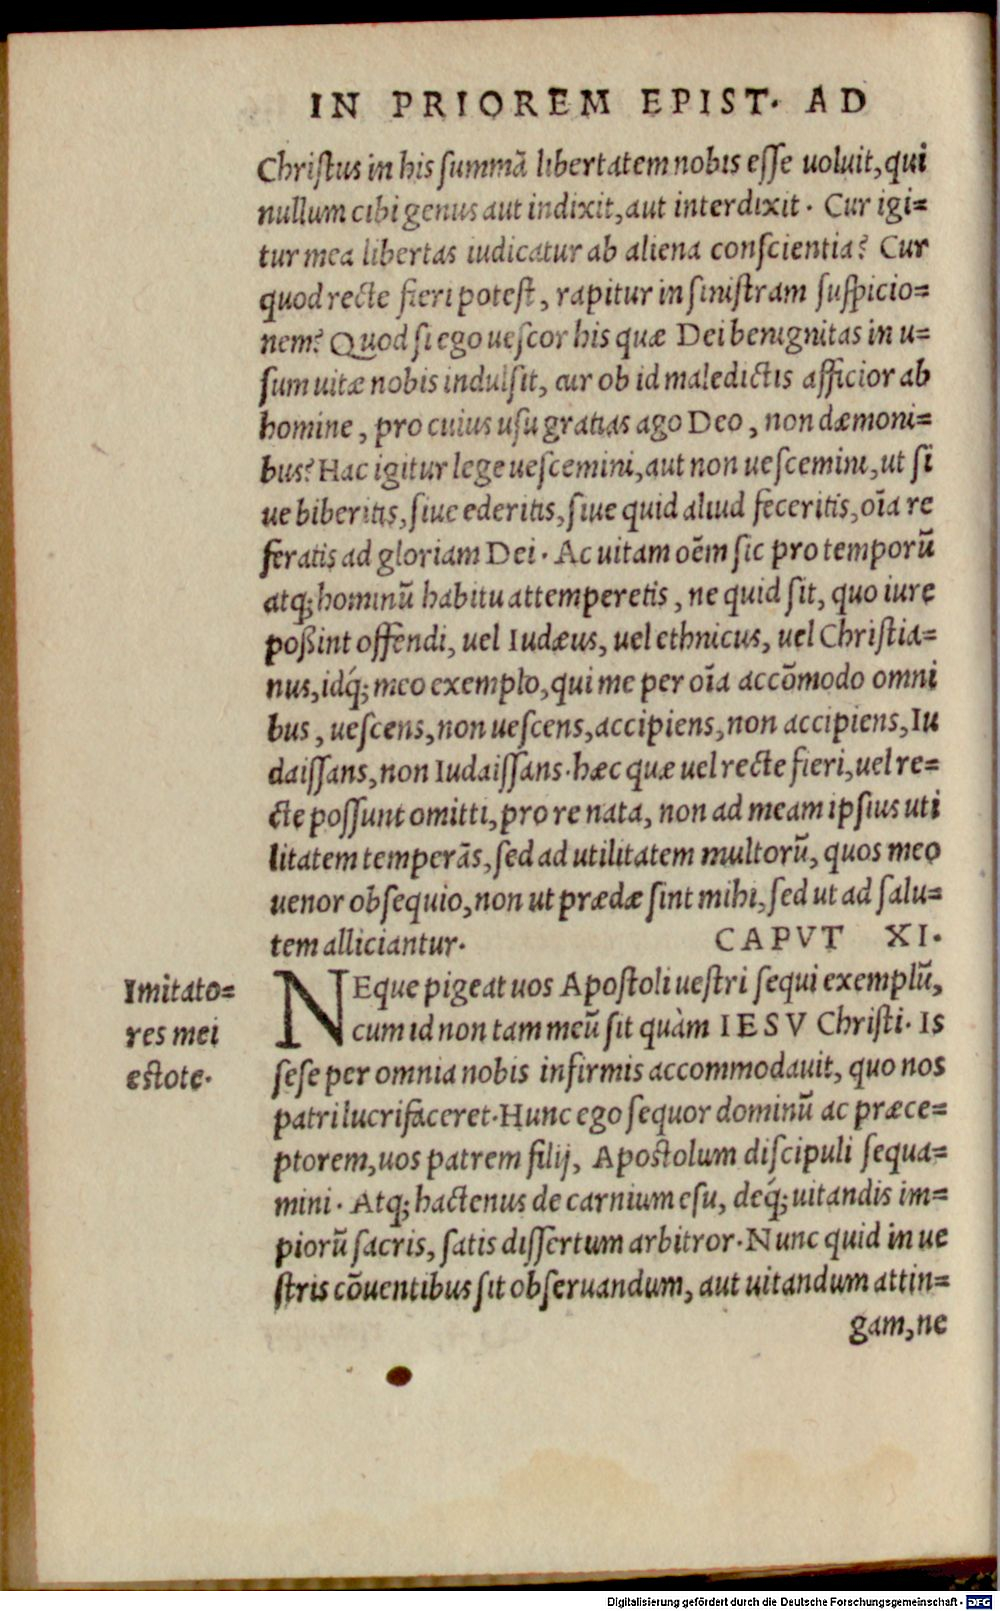 IN PRIOREM EPIST. AD
Chriſtus in his ſummā libertatem nobis eſſe uoluit, qui
nullum cibi genus aut indixit, aut interdixit. Cur igi=
tur mea libertas iudicatur ab aliena conſcientia? Cur
quod recte fieri poteſt, rapitur in ſiniſtram ſuſpicio=
nem? Quod ſi ego ueſcor his quæ Dei benignitas in u=
ſum uitæ nobis indulſit, cur ob id maledictis afficior ab
homine, pro cuius uſu gratias ago Deo, non dæmoni=
bus? Hac igitur lege ueſcemini, aut non ueſcemini, ut ſi
ue biberitis, ſiue ederitis, ſiue quid aliud feceritis, oīa re
feratis ad gloriam Dei. Ac uitam oēm ſic pro temporū
atq; hominū habitu attemperetis, ne quid ſit, quo iure
poßint offendi, uel Iudæus, uel ethnicus, uel Chriſtia=
nus, idq́; meo exemplo, qui me per oīa accōmodo omni
bus, ueſcens, non ueſcens, accipiens, non accipiens, Iu
daiſſans, non Iudaiſſans. hæc quæ uel recte fieri, uel re=
cte poſſunt omitti, pro re nata, non ad meam ipſius uti
litatem temperās, ſed ad utilitatem multorū, quos meo
uenor obſequio, non ut prædæ ſint mihi, ſed ut ad ſalu=
tem alliciantur. CAPVT XI.
Imitato=
res mei
eſtote.
NEque pigeat uos Apoſtoli ueſtri ſequi exemplū,
cum id non tam meū ſit quàm IESV Chriſti. Is
ſeſe per omnia nobis infirmis accommodauit, quo nos
patri lucrifaceret. Hunc ego ſequor dominū ac præce=
ptorem, uos patrem filij, Apoſtolum diſcipuli ſequa=
mini. Atq; hactenus de carnium eſu, deq́; uitandis im=
piorū ſacris, ſatis diſſertum arbitror. Nunc quid in ue
ſtris cōuentibus ſit obſeruandum, aut uitandum attin=
gam, ne
Digitalisierung gefördert durch die Deutsche Forschungsgemeinschaft - DFG